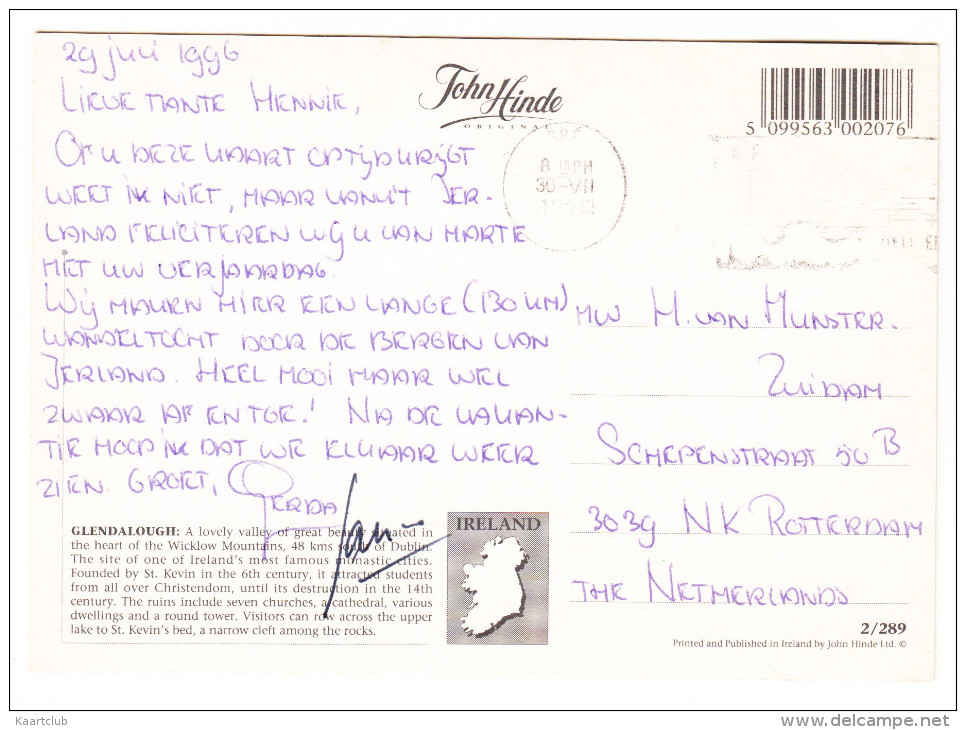 29 juli 1996
LIEVE TANTE HENNIE,
OF U DEZE KAART OPTIJD KRIJGT
WEET IK NIET, MAAR VANUIT IER-
LAND FELICITEREN WIJ U VAN HARTE
MET UW VERJAARDAG.
WIJ MAKEN HIER EEN LANGE (130 KM)
WANDELTOCHT DOOR DE BERGEN VAN
IERLAND. HEEL MOOI MAAR WEL
ZWAAR AF EN TOE! NA DE VAKAN-
TIE HOOP IK DAT WE ELKAAR WEER
ZIEN. GROET, GERDA
John Hinde
ORIGINAL
5 099563 002076
8 15PM
30-VII
MW H. VAN MUNSTER.
ZUIDAM
SCHEPENSTRAAT 50 B
3039 NK ROTTERDAM
THE NETHERLANDS
GLENDALOUGH: A lovely valley of great beauty situated in
the heart of the Wicklow Mountains, 48 kms south of Dublin.
The site of one of Ireland's most famous monastic cities.
Founded by St. Kevin in the 6th century, it attracted students
from all over Christendom, until its destruction in the 14th
century. The ruins include seven churches, a cathedral, various
dwellings and a round tower. Visitors can row across the upper
lake to St. Kevin's bed, a narrow cleft among the rocks.
IRELAND
2/289
Printed and Published in Ireland by John Hinde Ltd. ©
Kaartclub
www.delcampe.net